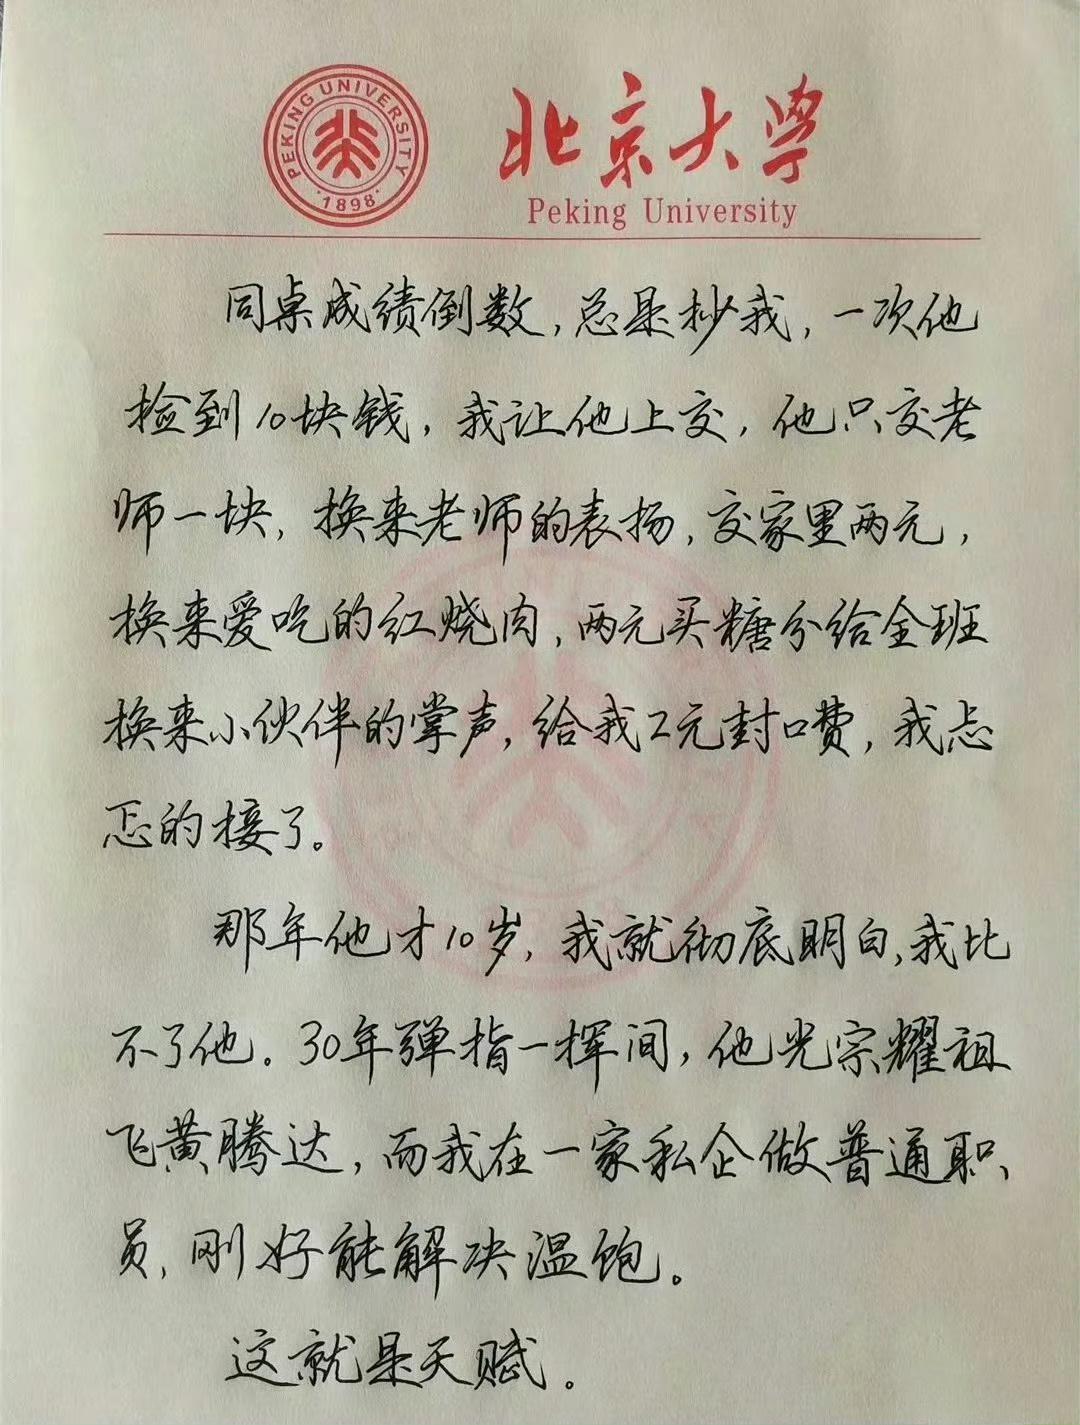 PEKING UNIVERSITY
1898
北京大学
Peking University
同桌成绩倒数，总是抄我，一次他
捡到10块钱，我让他上交，他只交老
师一块，换来老师的表扬，交家里两元，
换来爱吃的红烧肉，两元买糖分给全班
换来小伙伴的掌声，给我2元封口费，我忐
忑的接了。
那年他才10岁，我就彻底明白，我比
不了他。30年弹指一挥间，他光宗耀祖
飞黄腾达，而我在一家私企做普通职
员，刚好能解决温饱。
这就是天赋。